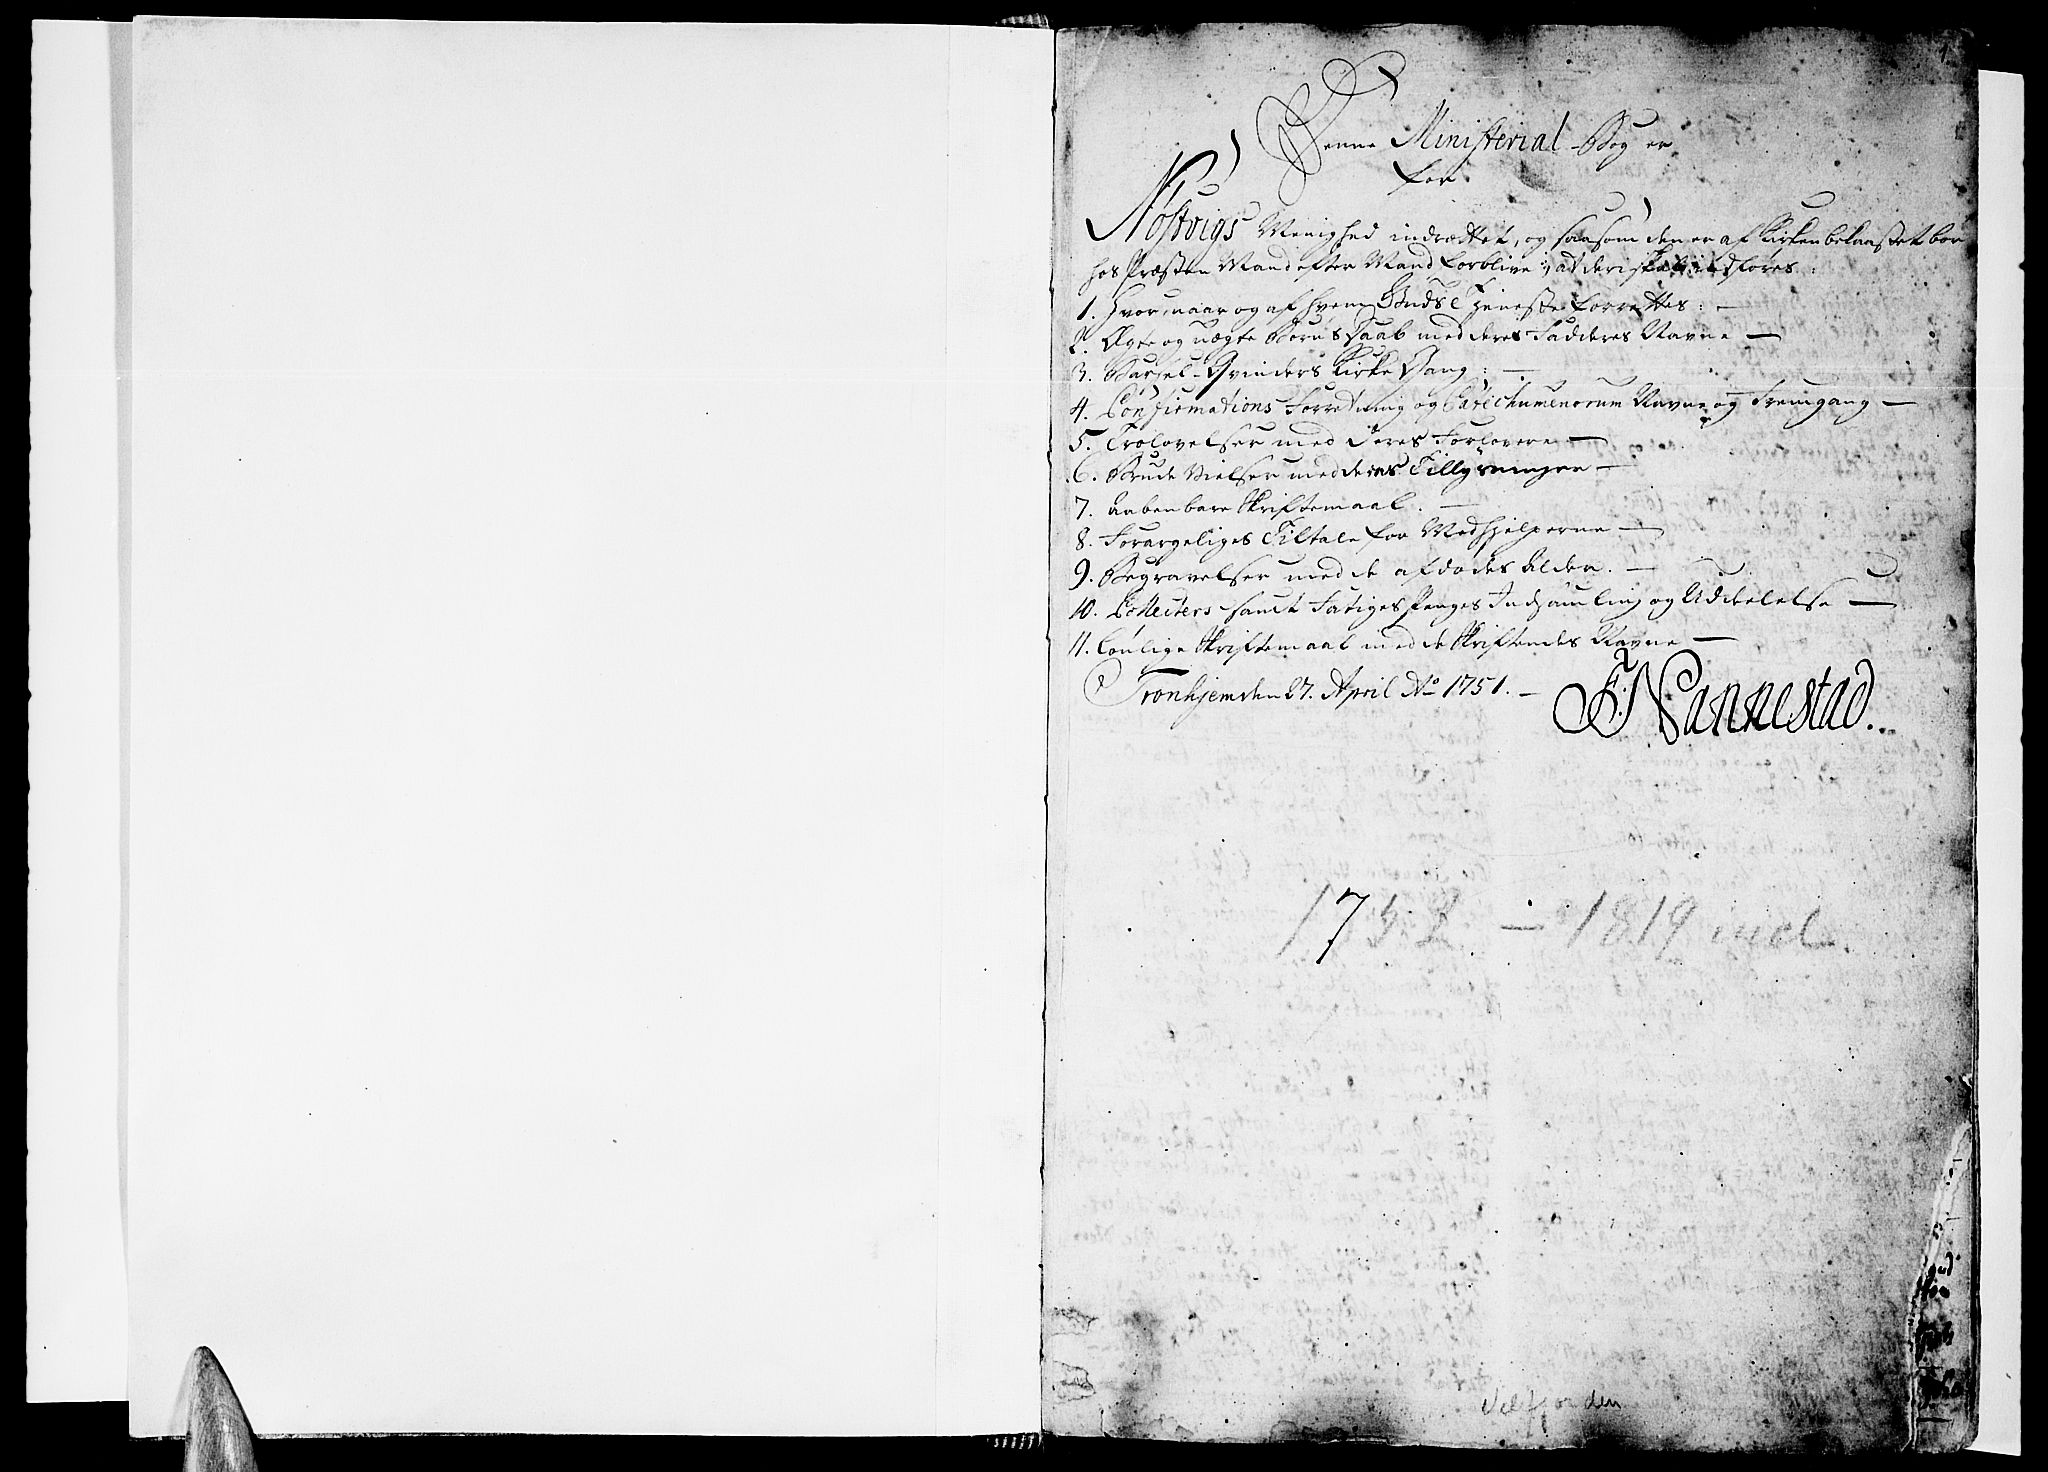 1
Denne Ministerial Bog er
for
Nøstvigs Menighed indrættet, og saasom den er af Kirken bekaastet bør
hos Præsten Mand efter Mand forblive, at deri skal indføres:
1. Hvor, naar og af hvem Guds Tjeneste forrettes: —
2. Ægte og uægte Børns Daab med deres Fadderes Navne —
3. Barsel-Qvinders Kirke Gang: —
4. Confirmations Forretning og Catechumenorum Navne og Fremgang —
5. Trolovelser med deres Forlovere —
6. Brude Vielser med deres Tillysninger —
7. Aabenbare Skriftemaal. —
8. Forargeliges Tiltale for Medhjelperne —
9. Begravelser med de afdødes Alder. —
10. Collecters samt Fattiges Penges Indsamling og Uddeelelse —
11. Lønlige Skriftemaal med de Skriftendes Navne —
Tronhjem den 27. April Ao 1751. —
F. Nannestad.
1752. — 1819 incl.
Velfjorden